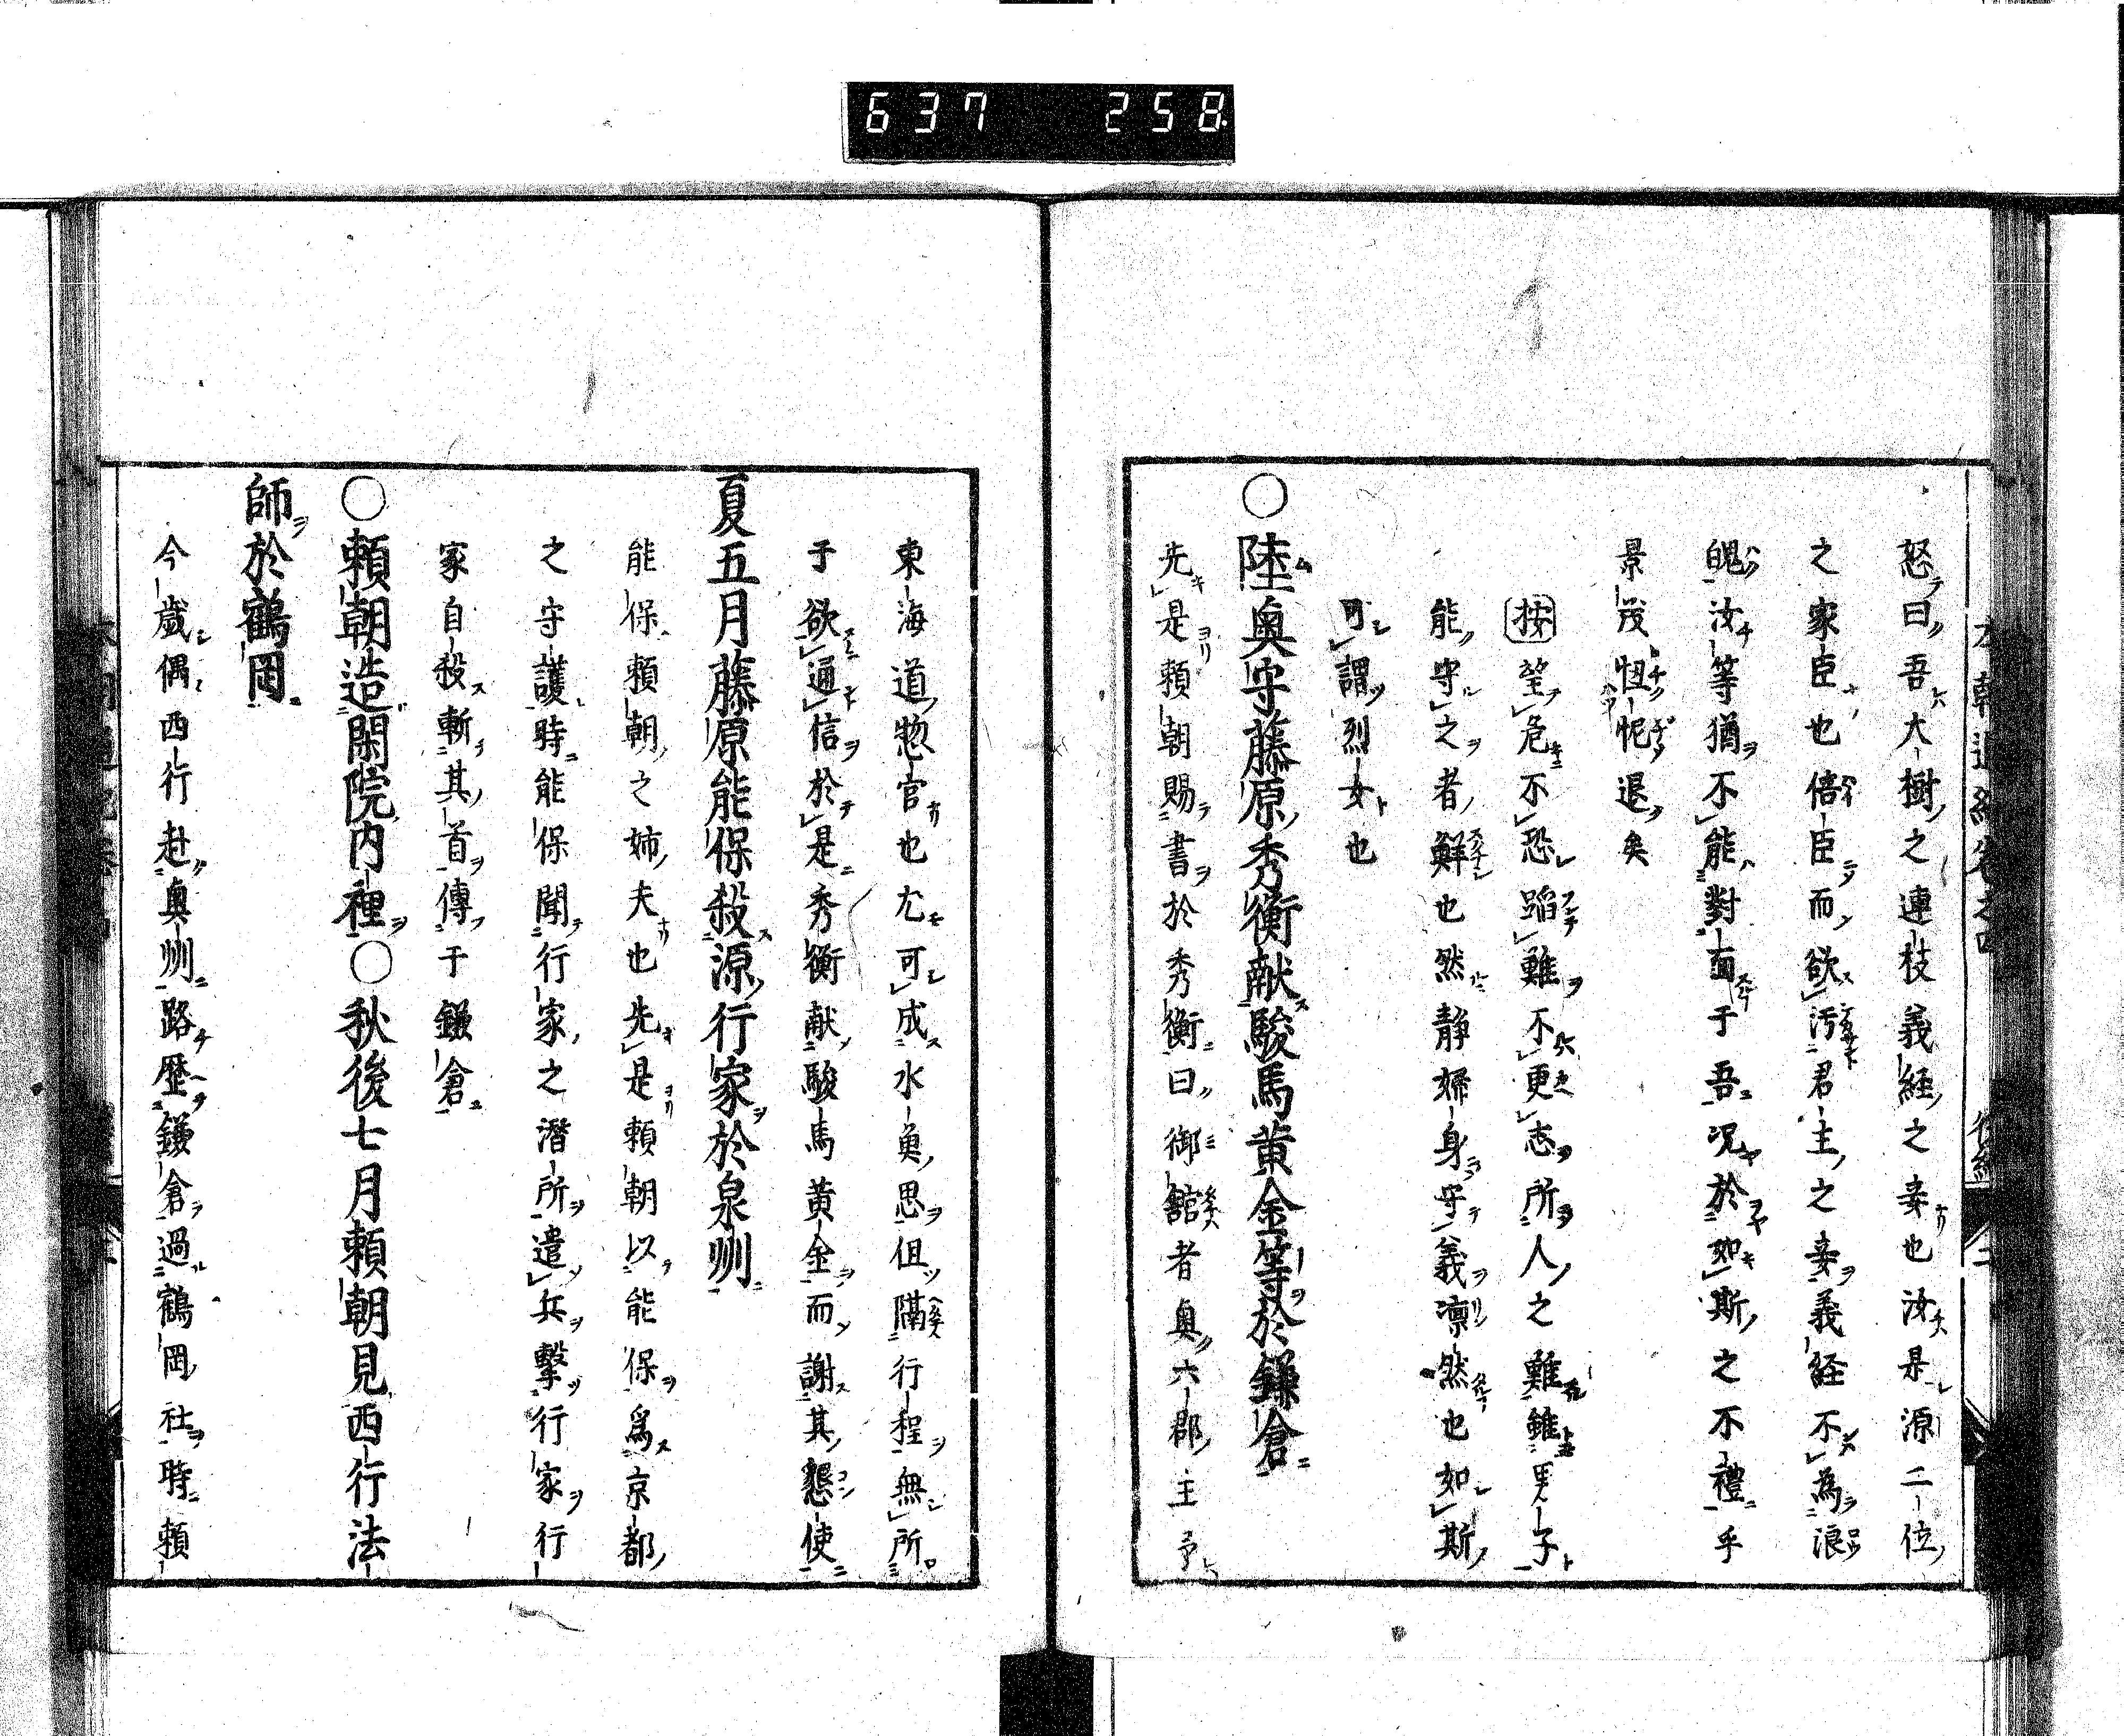 637 258
怒曰吾大樹之連枝義経之妾也汝是源二位
之家臣也倍臣而欲汚君主之妾義経不為浪
魄汝等猶不能對面于吾况於如斯之不禮乎
景茂忸怩退矣
按莅危不恐蹈難不更志所人之難雖男子
能守之者鮮也然静婦身守義凛然也如斯
可謂烈女也
〇陸奥守藤原秀衡献駿馬黄金等於鎌倉
先是頼朝賜書於秀衡曰御舘者奥六郡主予
東海道惣官也尤可成水魚思但隔行程無所
于欲通信於是秀衡献駿馬黄金而謝其懇使
夏五月藤原能保殺源行家於泉州
能保頼朝之姉夫也先是頼朝以能保爲京都
之守護時能保聞行家之潜所遣兵撃行家行
家自殺斬其首傳于鎌倉
〇頼朝造閑院内裡〇秋後七月頼朝見西行法
師於鶴岡
今歳偶西行赴奥州路歴鎌倉過鶴岡社時頼